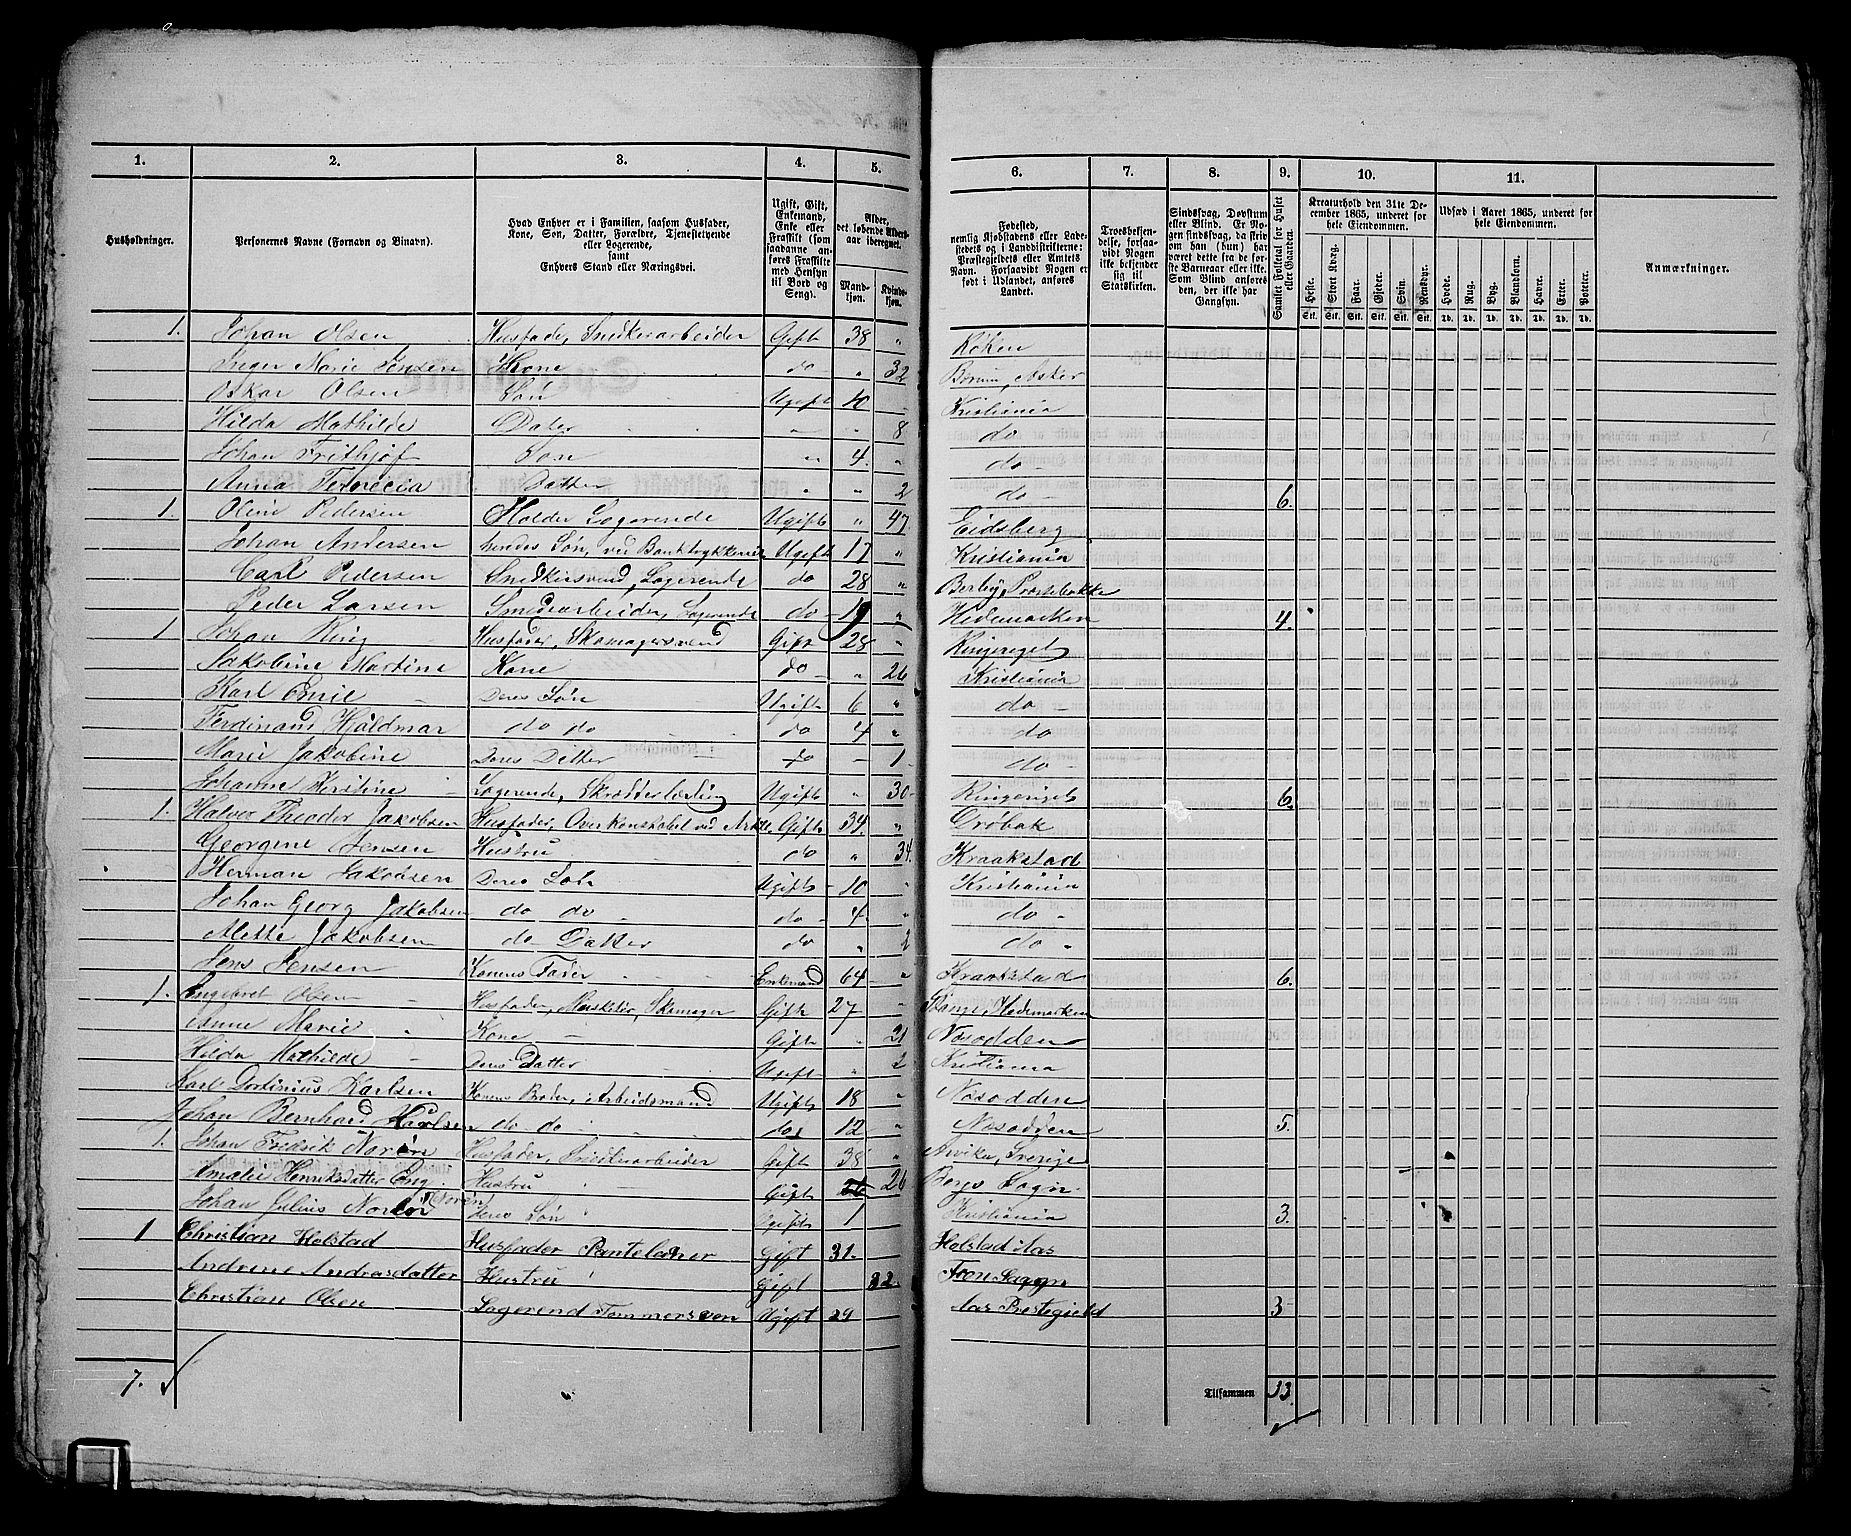 1. 2. 3. 4. 5. 6. 7. 8. 9. 10. 11.
Husholdninger.
Personernes Navne (Fornavn og Binavn).
Hvad Enhver er i Familien, saasom Husfader,
Kone, Søn, Datter, Forældre, Tjenestetyende
eller Logerende,
samt
Enhvers Stand eller Næringsvei.
Ugift, Gift,
Enkemand,
Enke eller
Fraskilt (som
saadanne an-
føres Fraskilte
med Hensyn
til Bord og
Seng).
Alder,
det løbende Alders-
aar iberegnet.
Mand-
kjøn.
Kvinde-
kjøn.
Fødested,
nemlig Kjøbstadens eller Lade-
stedets og i Landdistrikterne:
Præstegjeldets eller Amtets
Navn. Forsaavidt Nogen er
født i Udlandet, anføres
Landet.
Troesbekjen-
delse, forsaa-
vidt Nogen
ikke bekjender
sig til
Statskirken.
Sindssvag, Døvstum
eller Blind. Er No-
gen sindssvag, da skriv
om han (hun) har
været dette fra de før-
ste Barneaar eller ikke.
Som Blind anføres
den, der ikke har
Gangsyn.
Samlet Folketal for Huset
eller Gaarden.
Kreaturhold den 31te De-
cember 1865, underet for
hele Eiendommen.
Heste. Stort Kvæg. Faar. Gjeder. Svin. Rensdyr.
Stk. Stk. Stk. Stk. Stk. Stk.
Udsæd i Aaret 1865, underet for
hele Eiendommen.
Hvede. Rug. Byg. Blandkorn. Havre. Erter. Poteter.
Td. Td. Td. Td. Td. Td. Td.
Anmærkninger.
1. Johan Olsen Husfader, Snedkerarbeider Gift 38 " Røken
Inger Marie Jensen Kone do " 32 Bærum, Asker
Oskar Olsen Søn Ugift 10 Kristiania
Hilda Mathilde Dater " 8 do
Johan Frithjof Søn " 4. " do
Anna Datter " " 2 do 6.
1. Oline Pedersen Holder Logerende Ugift " 47. Eidsberg
Johan Andersen hendes Søn, ved Ugift 17 " Kristiania
Carl Pedersen Snedkersvend, Logerende do 28 " Berby, Præstebakke
Peder Larsen Smedarbeider, Logerende do 19 " Hedemarken 4.
1 Johan Husfader, Skomagersvend Gift 28 " Ringeriget
Jakobine Martine Kone do " 26 Kristiania
Karl Emil Deres Søn Ugift 6 " do
Ferdinand Hjaldmar do do do 4 " do
Marie Jakobine Deres Datter do 1 do
Johanne Kirstine Logerende, Ugift " 30 Ringeriget 6.
1. Halvor Theodor Jakobsen Husfader, Overkonstabel ved Gift 34 " Drøbak
Georgine Jensen Hustru do " 34. Kraakstad
Herman Jakobsen Deres Søn Ugift 10 " Kristiania
Johan Georg Jakobsen do do do 4 " do
Mette Jakobsen do Datter do " 2 do "
Jens Jensen Konens Fader Enkemand 64 " Kraakstad 6.
1. Engebret Olsen Husfader, Skomager Gift 27 " Stange, Hedemarken
Anne Marie Kone Gift " 21 Næsodden
Hilda Mathilde Deres Datter Ugift " 2 Kristiania
Karl Karlsen Konens Broder, Arbeidsmand Ugift 18 " Næsodden
Johan Bernhard Karlsen do do do 12 " Næsodden 5.
1. Johan Fredrik Norén Husfader, Snedkerarbeider Gift 38 " Arvika, Sverige
Amalie Henriksdatter Eng Hustru Gift 26 Bergs Sogn
Johan Julius Norén (Norén) Deres Søn Ugift 1 Kristiania 3.
1 Christian Holstad Husfader Pantelaaner Gift 31. Holstad Aas
Andrine Andrasdatter Hustru Gift 32. Fron Saggn
Christian Olsen Logerend Tømmersven Ugift 29 Aas Prestegjeld 3
7.
Tilsammen 33.